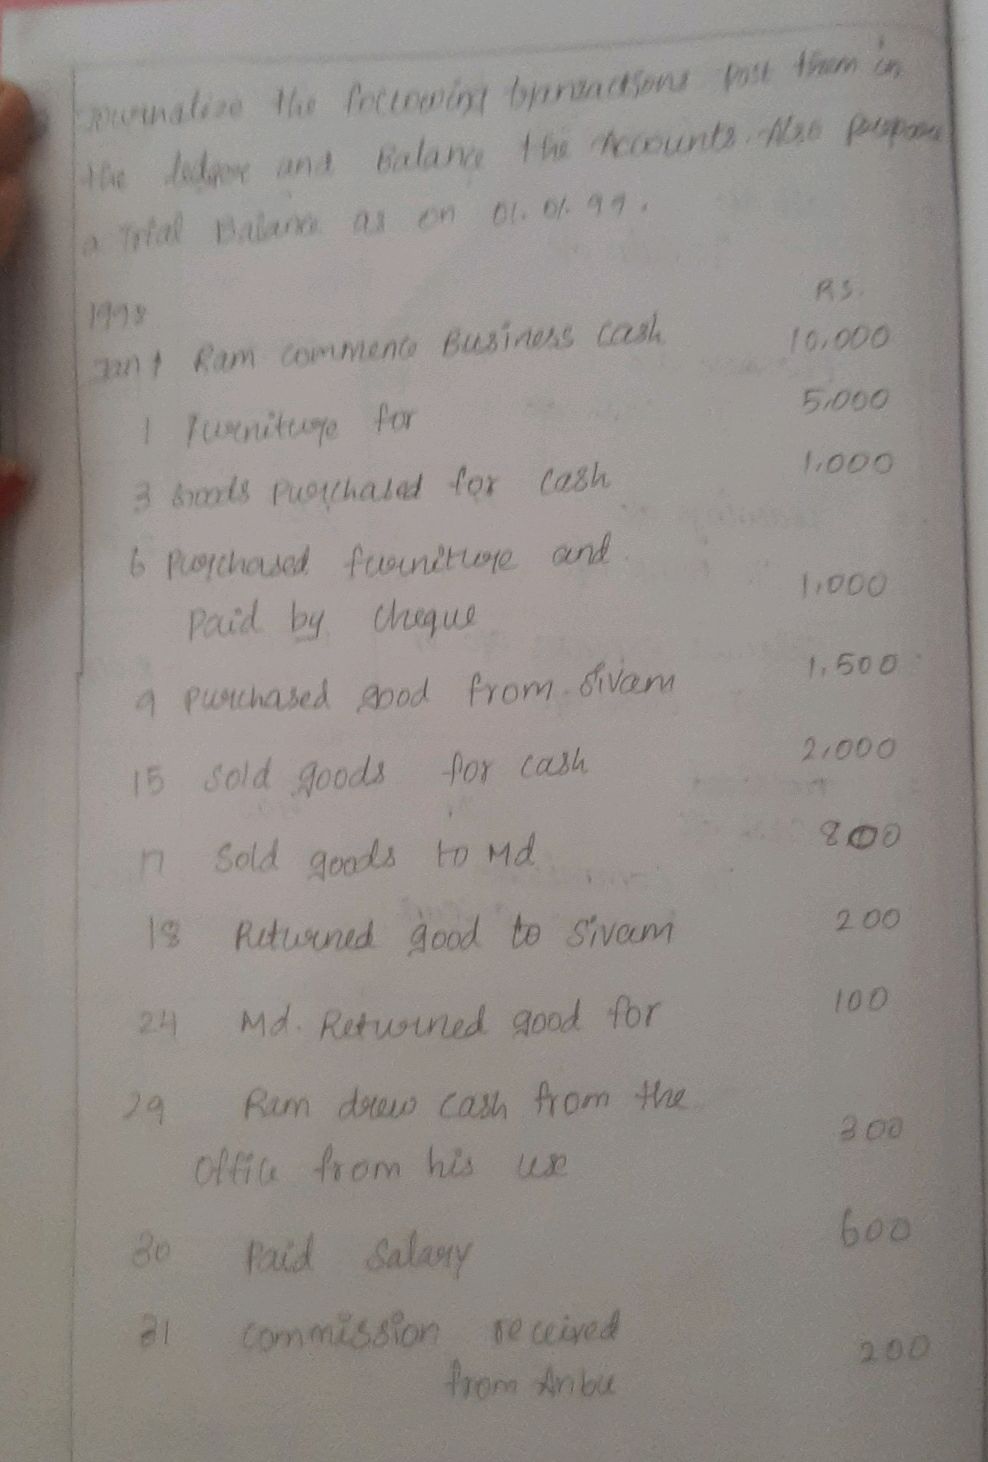 Journalise the following transactions post them in
the ledger and Balance the Accounts. Also prepare
a Trial Balance as on 01.01.99.
1998 RS.
Jan 1 Ram commence Business cash 10,000
1 Furniture for 5,000
3 Goods purchased for cash 1,000
6 Purchased furniture and
Paid by cheque 1,000
9 purchased good from Sivam 1,500
15 Sold goods for cash 2,000
17 Sold goods to Md 800
18 Returned good to Sivam 200
24 Md. Returned good for 100
29 Ram drew cash from the
Office from his use 300
30 Paid Salary 600
31 commission received
from Anbu 200